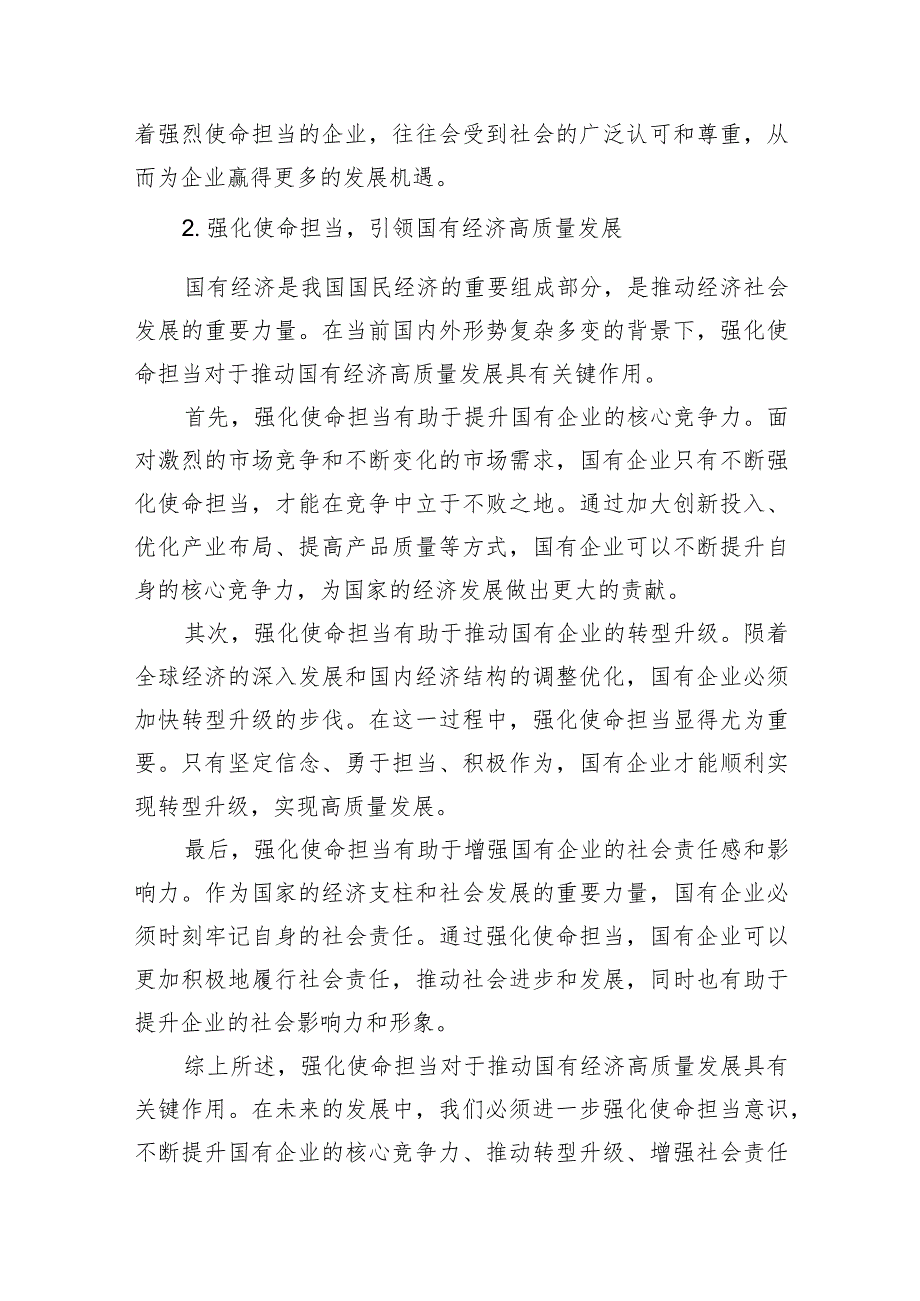 着强烈使命担当的企业，往往会受到社会的广泛认可和尊重，从
而为企业赢得更多的发展机遇。
2. 强化使命担当，引领国有经济高质量发展
国有经济是我国国民经济的重要组成部分，是推动经济社会
发展的重要力量。在当前国内外形势复杂多变的背景下，强化使
命担当对于推动国有经济高质量发展具有关键作用。
首先，强化使命担当有助于提升国有企业的核心竞争力。面
对激烈的市场竞争和不断变化的市场需求，国有企业只有不断强
化使命担当，才能在竞争中立于不败之地。通过加大创新投入、
优化产业布局、提高产品质量等方式，国有企业可以不断提升自
身的核心竞争力，为国家的经济发展做出更大的贡献。
其次，强化使命担当有助于推动国有企业的转型升级。陨着
全球经济的深入发展和国内经济结构的调整优化，国有企业必须
加快转型升级的步伐。在这一过程中，强化使命担当显得尤为重
要。只有坚定信念、勇于担当、积极作为，国有企业才能顺利实
现转型升级，实现高质量发展。
最后，强化使命担当有助于增强国有企业的社会责任感和影
响力。作为国家的经济支柱和社会发展的重要力量，国有企业必
须时刻牢记自身的社会责任。通过强化使命担当，国有企业可以
更加积极地履行社会责任，推动社会进步和发展，同时也有助于
提升企业的社会影响力和形象。
综上所述，强化使命担当对于推动国有经济高质量发展具有
关键作用。在未来的发展中，我们必须进一步强化使命担当意识，
不断提升国有企业的核心竞争力、推动转型升级、增强社会责任